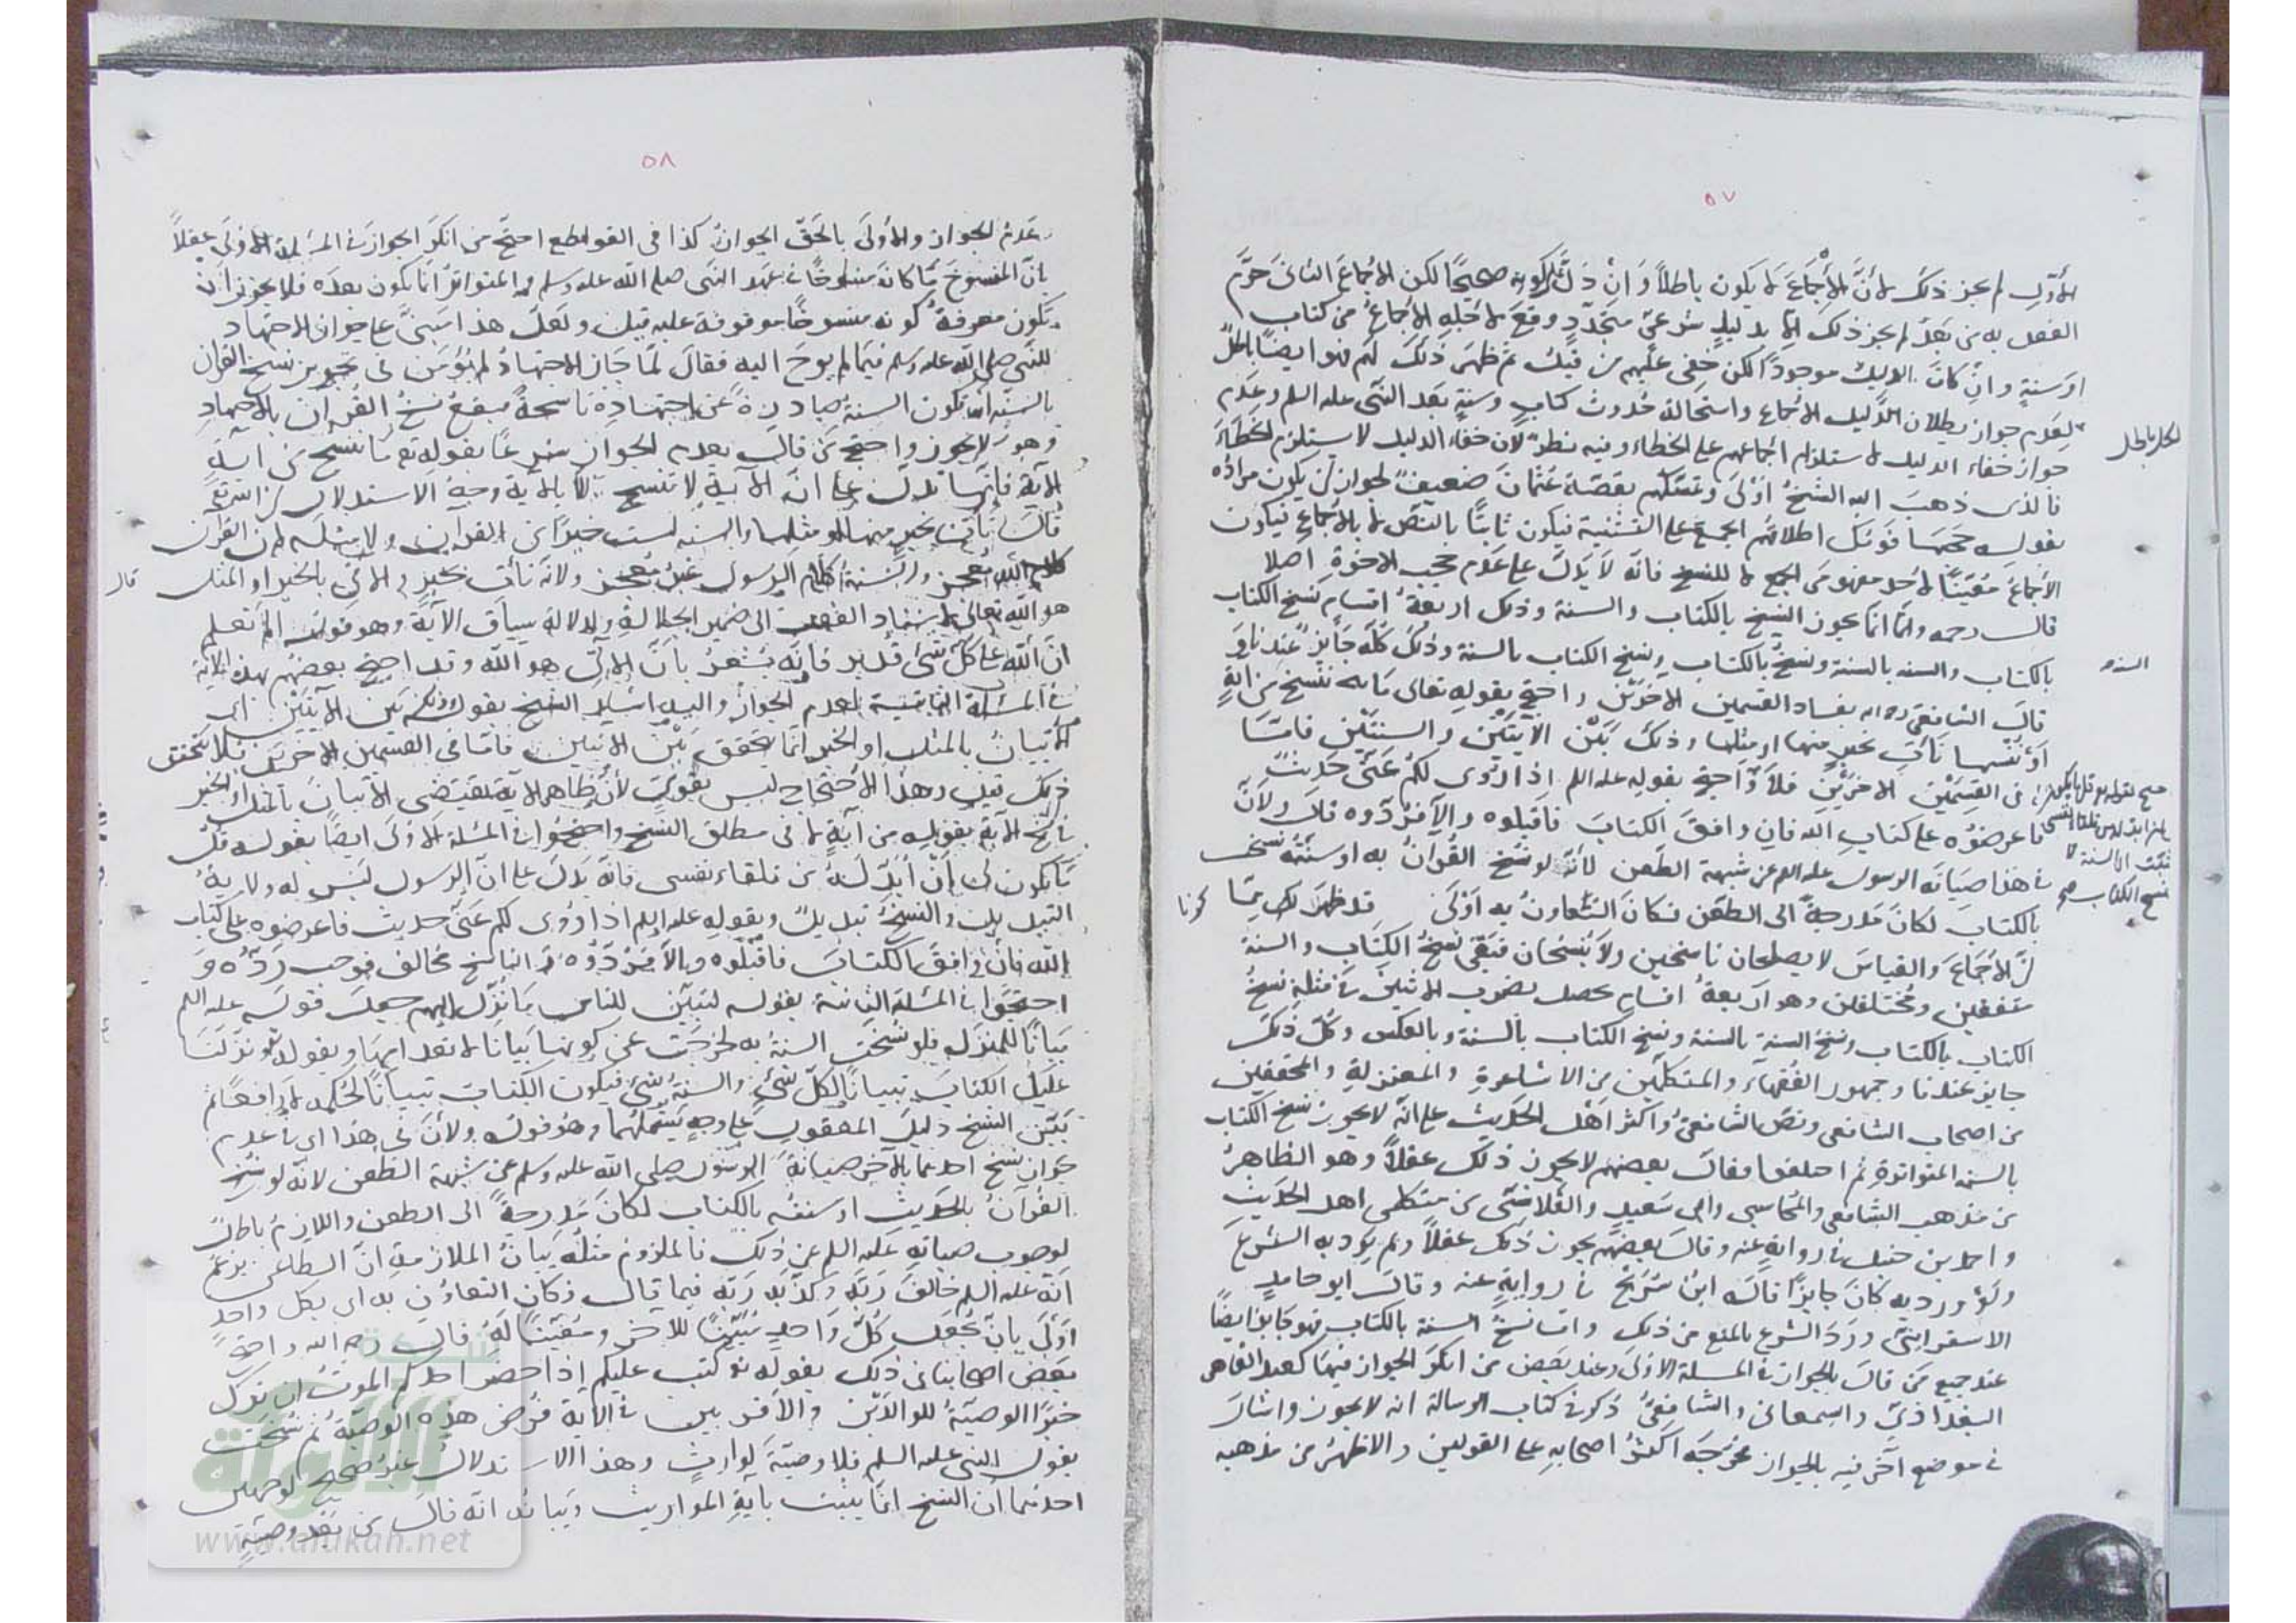 ٥٧
الأول لم يجز ذلك لأن الإجماع لا يكون باطلاً وان دل على كونه صحيحًا لكن الإجماع الثاني حرّم
العمل به من بعدُ لم يجز ذلك الا بدليل شرعي متجدّد وقع لأجله الإجماعُ من كتاب
او سنةٍ وان كان الدليل موجودًا لكن خفي عليهم من قبل ثم ظهر ذلك لهم فهو ايضًا باطل
لعدم جواز بطلان الدليل الإجماع واستحالة حدوث كتاب وسنةٍ بعد النبي عليه السلم وعدم
الكل باطل
جواز خفاء الدليل لاستلزام اجماعهم على الخطاء وفيه نظر لان خفاء الدليل لا يستلزم الخطاءَ
فالذي ذهب اليه الشيخ اَوْلى وتمسّكهم بقصّة عثمان ضعيفٌ لجواز ان يكون مراده
بقوله حجبها قومك اطلاقهم الجمع على التثنية فيكون ثابتًا بالنص لا بالإجماع فيكون
الإجماع مُعَيّنًا لأحد مفهومَي الجمع لا للنسخ فانه لا يدلّ على عدم حجب الاخوة اصلا
قال رحمه وانما يجوز النسخ بالكتاب والسنة وذلك اربعةُ اقسام نسخ الكتاب
بالكتاب والسنه بالسنة ونسخ بالكتاب ونسخ الكتاب بالسنة وذلك كلّه جَائز عندنا وَ
السنه
قالَ الشافعي رحمه الله بفساد القسمين الاخرَيْن واحتج بقوله تعالى مَا ننسخ من آيةٍ
اَوْ نُنْسِهَا نَأتِ بخير منها او مثلها وذلك بَيْن الآيتَيْن والسنتَيْن فامّا
في القسمَيْن الاخرَيْن فلاَ وَاحتج بقوله عليه السلم اذا رُوِى لكمْ عَنّي حديثٌ
فاعرضوه على كتاب الله فان وافق الكتابَ فاقبلوه والاّ فرُدّوه قال ولأنّ
نسخ الكتاب صح
في هذا صيانَةَ الرسول عليه السلم عن شبهة الطعن لأنه لو نُسخ القرآنُ به او سُنّته نُسخت
بالكتاب لكانَ مَدرجةً الى الطعن فكان التعاونُ به اَوْلى قد ظهر لك ممّا
انّ الإجماعَ والقياسَ لا يصلحان ناسخين ولا يُنسَخان فبقي نسخُ الكتاب والسنة
متفقين ومختلفين وهو اربعةُ اقسام يحصل بضرب الاثنين في مثله نسخُ
الكتاب بالكتاب ونسخُ السنة بالسنة ونسخ الكتاب بالسنة وبالعكس وكلّ ذلك
جايز عندنا وجمهور الفقهاء والمتكلمين من الاشاعرةِ والمعتزلةِ والمحققين
من اصحاب الشافعي ونصّ الشافعيّ واكثر اهل الحديث على انّه لا يجوز نسخ الكتاب
بالسنه المتواترة ثم اختلفوا فقال بعضهم لا يجوز ذلك عقلاً وهو الظاهرُ
من مذهب الشافعي والمحاسبي وابي سَعيدٍ والقلانسي من متكلمي اهل الحديث
واحمد بن حنبل في روايةٍ عنه وقال بعضهم يجوز ذلك عقلاً ولم يرد به الشرع
ولَوْ ورد به كانَ جايزًا قاله ابنُ سُرَيْج في روايةٍ عنه وقال ابو حامد
الاسفرايني ورَدَ الشرع بالمنع من ذلك وامّا نسخُ السنة بالكتاب فهو جايز ايضًا
عند جميع مَن قال بالجواز في المسئلة الاولى وعند بعض من انكر الجواز فيها كعبد القاهر
البغداذيّ والسمعاني والشافعيُّ ذكر في كتاب الرسالة انه لا يجوز واشار
في موضع آخر فيه بالجواز فخَرّجه اكثرُ اصحابه على القولين والاظهرُ من مذهبه
٥٨
عدمُ الجواز والأولَى بالحَقّ الجوازُ كذا في القواطع احتج من انكَر الجوازَ في المسئلة الاولى عقلاً
بانّ المنسوخَ ما كانَ منسوخًا في عهد النبي صلى الله عليه وسلم والمتواترُ انّما يكون بعدَه فلا يجوز ان
يكون معرفةُ كونه منسوخًا موقوفة عليه قيل ولعلّ هذا مبنيٌّ على جواز الاجتهاد
للنبي صلى الله عليه وسلم فيما لم يوحَ اليه فقالَ لمّا جاز الاجتهادُ لم يُؤمَن في تجويز نسخ القرآن
بالسنة ان يكون السنةُ صادرةً عن اجتهاده ناسخةً فيقع نسخُ القرآن بالاجتهادِ
وهو لا يجوز واحتج مَن قال بعدم الجواز شرعًا بقوله تع ما ننسخ من آيةٍ
الآية فانها تدلّ على انّ الآيةَ لا تنسخ الاّ بالآية وجهُ الاستدلال
قال نأت بخير منها او مثلها والسنه ليست خيرًا من القرآن ولا مثلَه لان القرآن
كلام الله معجز والسنةُ كلام الرسول غيرُ معجز ولانّه نأت بخير والآتي بالخير او المثل
هو الله تعالى لاسناد الفعل الى ضمير الجلالة ولدلالة سياق الآية وهو قوله المْ تعلم
انّ الله على كلّ شيٍ قدير فانّه يُشعرُ بانّ الآتي هو الله وقد احتج بعضهم بهذه الآية
في المسئلة الثانية لعدم الجواز واليه اشار الشيخ بقوله وذلك بَين الآيتَيْن اى
الإتيانُ بالمثل او الخير انّما يتحقق بَيْن الاثنين فامّا في القسمين الاخريَن فلا يتحقق
ذلك قيل وهذا الاحتجاج ليس بقويّ لأنّ ظاهر الآية يقتضي الاتيانَ بالمثل او الخير
في نسخ الآية بقوله من آيةٍ لا في مطلق النسخ واحتجّوا في المسئلة الأولى ايضًا بقوله قل
مَا يكون لي اَنْ اُبَدّله من تلقاء نفسي فانّه يَدلّ على انّ الرسول ليس له ولايةُ
التبديل والنسخُ تبديلٌ وبقوله عليه السلم اذا رُوى لكم عَنّي حديث فاعرضوه على كتاب
الله فانْ وافق الكتابَ فاقبلوه وبالاّ فرُدّوه والناسخ مخالف فوجب رَدُّه وَ
احتجّوا في المسئلة الثانية بقوله لتبيّن للناس مَا نُزّل اليهم جعل قوله عليه السلم
بَيانًا للمنزَل فلو نُسخت السنةُ به لخرجَت عن كونها بيانا لانعدامها وبقوله تع ونَزّلنَا
عليك الكتابَ تبيانًا لكلّ شيْءٍ والسنةُ شيءٌ فيكون الكتاب تبيانًا لحُكمه لا رافعًا ثم
بَيّن الشيخ دليلَ المعقول على وجهٍ يَشملُهما وهو قولُه ولأنّ في هذا اى في عدم
جواز نسخ احدهما بالآخر صيانةَ الرسُول صلى الله عليه وسلم عن شبهة الطعن لانّه لو نُسخ
القرآنُ بالحديث او سنتُه بالكتاب لكانَ مَدرجةً الى الطعن واللازمُ باطلٌ
لوجوب صيانته عليه السلم عن ذلك فالملزوم مثلُه بيانُ الملازمة انّ الطاعن يزعُم
انّه عليه السلم خالفَ رَبّه وكذّبه رَبّه فيما قال فكان التعاوُن به اى بكل واحدٍ
اَوْلَى بانْ يُجعَل كُلُّ وَاحدٍ مُبَيّنًا للآخر ومُعيّنًا لَهُ قال رحمه الله واحتجّ
بعض اصحابنا في ذلك بقوله تع كتب عليكم اذا حضر احدكم الموت ان ترك
خيرًا الوصيّةُ للوالدَيْن والأقربين في الآية فرض هذه الوصيّةُ ثم نُسخَت
بقول النبي عليه السلم فلا وصيّةَ لوارثٍ وهذا الاستدلالُ غيرُ صحيح لوجهين
احدُهما انّ النسخ انّما يثبت بآيةِ المواريث وبَيانُه انّه قالَ من بَعْد وصيّةٍ
شبكة
الألوكة
www.alukah.net